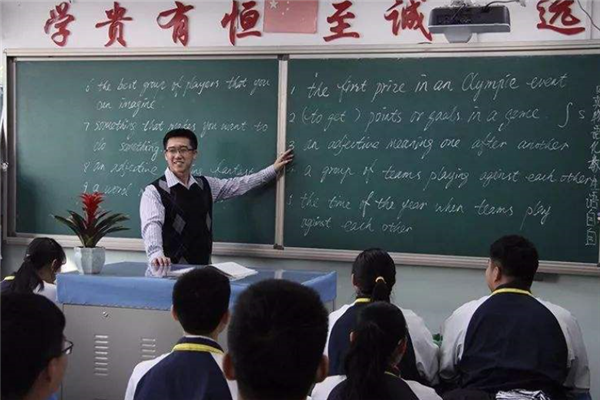 学贵有恒 至诚 远
6 the best group of players that you
can imagine
7 something that makes you want to
do something
8 an adjective
9 a word
1 the first prize in an Olympic event
2 (to get) points or goals in a game.
3 an adjective meaning one after another
a group of teams playing against each other
the time of the year when teams play
against each other